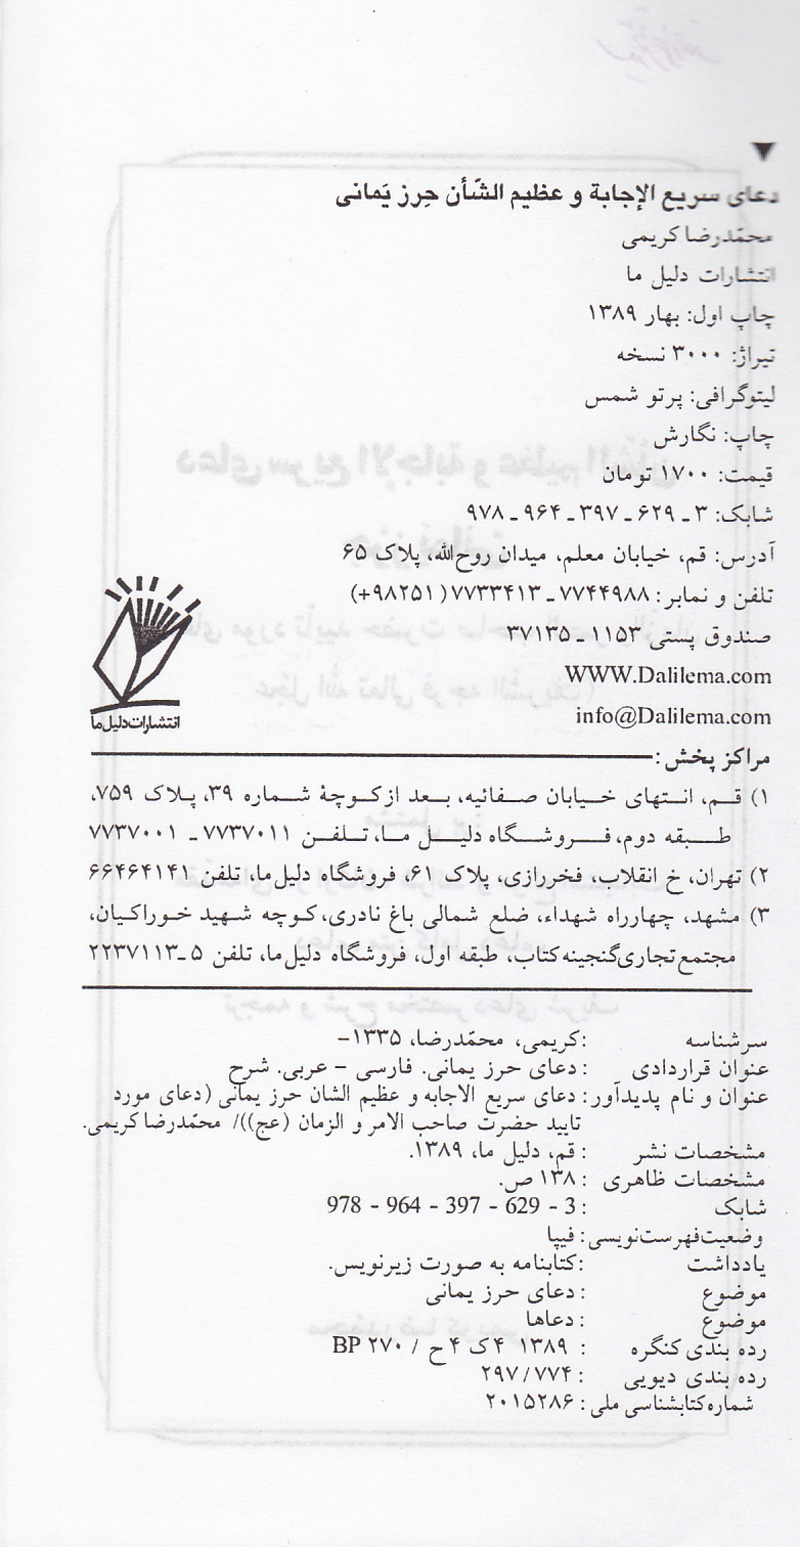 دعای سریع الإجابة و عظیم الشّأن حِرز یَمانی
محمّدرضا کریمی
انتشارات دلیل ما
چاپ اول: بهار ۱۳۸۹
تیراژ: ۳۰۰۰ نسخه
لیتوگرافی: پرتو شمس
چاپ: نگارش
قیمت: ۱۷۰۰ تومان
شابک: ۳ ـ ۶۲۹ ـ ۳۹۷ ـ ۹۶۴ ـ ۹۷۸
آدرس: قم، خیابان معلم، میدان روح‌الله، پلاک ۶۵
تلفن و نمابر: ۷۷۴۴۹۸۸ ـ ۷۷۳۳۴۱۳ (۹۸۲۵۱+)
صندوق پستی ۱۱۵۳ ـ ۳۷۱۳۵
WWW.Dalilema.com
info@Dalilema.com
انتشارات دلیل ما
مراکز پخش:
۱) قم، انتهای خیابان صفائیه، بعد از کوچۀ شماره ۳۹، پلاک ۷۵۹،
طبقه دوم، فروشگاه دلیل ما، تلفن ۷۷۳۷۰۱۱ ـ ۷۷۳۷۰۰۱
۲) تهران، خ انقلاب، فخررازی، پلاک ۶۱، فروشگاه دلیل‌ما، تلفن ۶۶۴۶۴۱۴۱
۳) مشهد، چهارراه شهداء، ضلع شمالی باغ نادری، کوچه شهید خوراکیان،
مجتمع تجاری گنجینه کتاب، طبقه اول، فروشگاه دلیل‌ما، تلفن ۵ ـ ۲۲۳۷۱۱۳
سرشناسه : کریمی، محمّدرضا، ۱۳۳۵–
عنوان قراردادی : دعای حرز یمانی. فارسی – عربی. شرح
عنوان و نام پدیدآور: دعای سریع الاجابه و عظیم الشان حرز یمانی (دعای مورد
تایید حضرت صاحب الامر و الزمان (عج))/ محمّدرضا کریمی.
مشخصات نشر : قم، دلیل ما، ۱۳۸۹.
مشخصات ظاهری : ۱۳۸ ص.
شابک : 978 - 964 - 397 - 629 - 3
وضعیت‌فهرست‌نویسی: فیپا
یادداشت : کتابنامه به صورت زیرنویس.
موضوع : دعای حرز یمانی
موضوع : دعاها
رده بندی کنگره : ۱۳۸۹ ۴ک ۴ح / BP ۲۷۰
رده بندی دیویی : ۲۹۷/۷۷۴
شماره کتابشناسی ملی : ۲۰۱۵۲۸۶